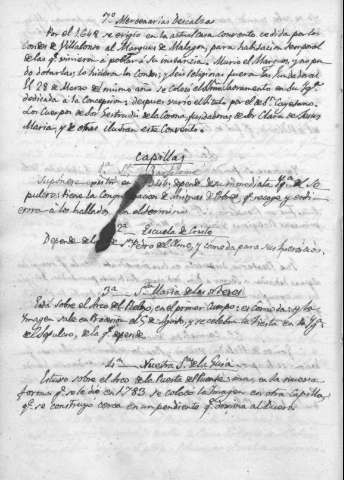 7º Mercenarias Descalzas
Por el 1648 se erigio en la actual casa convento cedida por los
Condes de Villalonso al Marques de Malagon, para habitacion temporal
de las qe vinieron a poblar a su instancia. Murio el Marques, y no pu
do dotarlas; lo hicieron los Condes; y seis religiosas fueron las fundadoras.
El 28 de Marzo del mismo año se colocó el Smo Sacramento en su Yga
dedicada á la Concepcion; despues vario el titulo por el de Sn Cayetano.
Los Cuerpos de Sor Gertrudis de la Corona, fundadora, de Sor Clara de Jesus
Maria, y de otras ilustran este Convento.
Capillas
1ª Sn Bartolomé
Supónese existir en 1246; depende de su inmediata Yga del Se
pulcro; tiene la Congregacion de Animas de Pobres, qe recoge y enti
erra á los hallados en el termino
2ª Escuela de Cristo
Depende de la de Sn Pedro del Olmo, y comoda para sus exercicios.
3ª Sta Maria de las Nieves
Está sobre el Arco del Reloxo, en el primer Cuerpo: es comoda: su
Imagen sale en Procesion el 5 de Agosto, y se celebra la fiesta en la Yga
del Sepulcro, de la qe depende
4ª Nuestra Sra de la Guia
Estuvo sobre el Arco de la Puerta del Puente: mas en la nueva
forma qe se le dió en 1783 se colocó la Imagen en otra Capilla
qe se construyó cerca en un pendiente qe domina al Duero